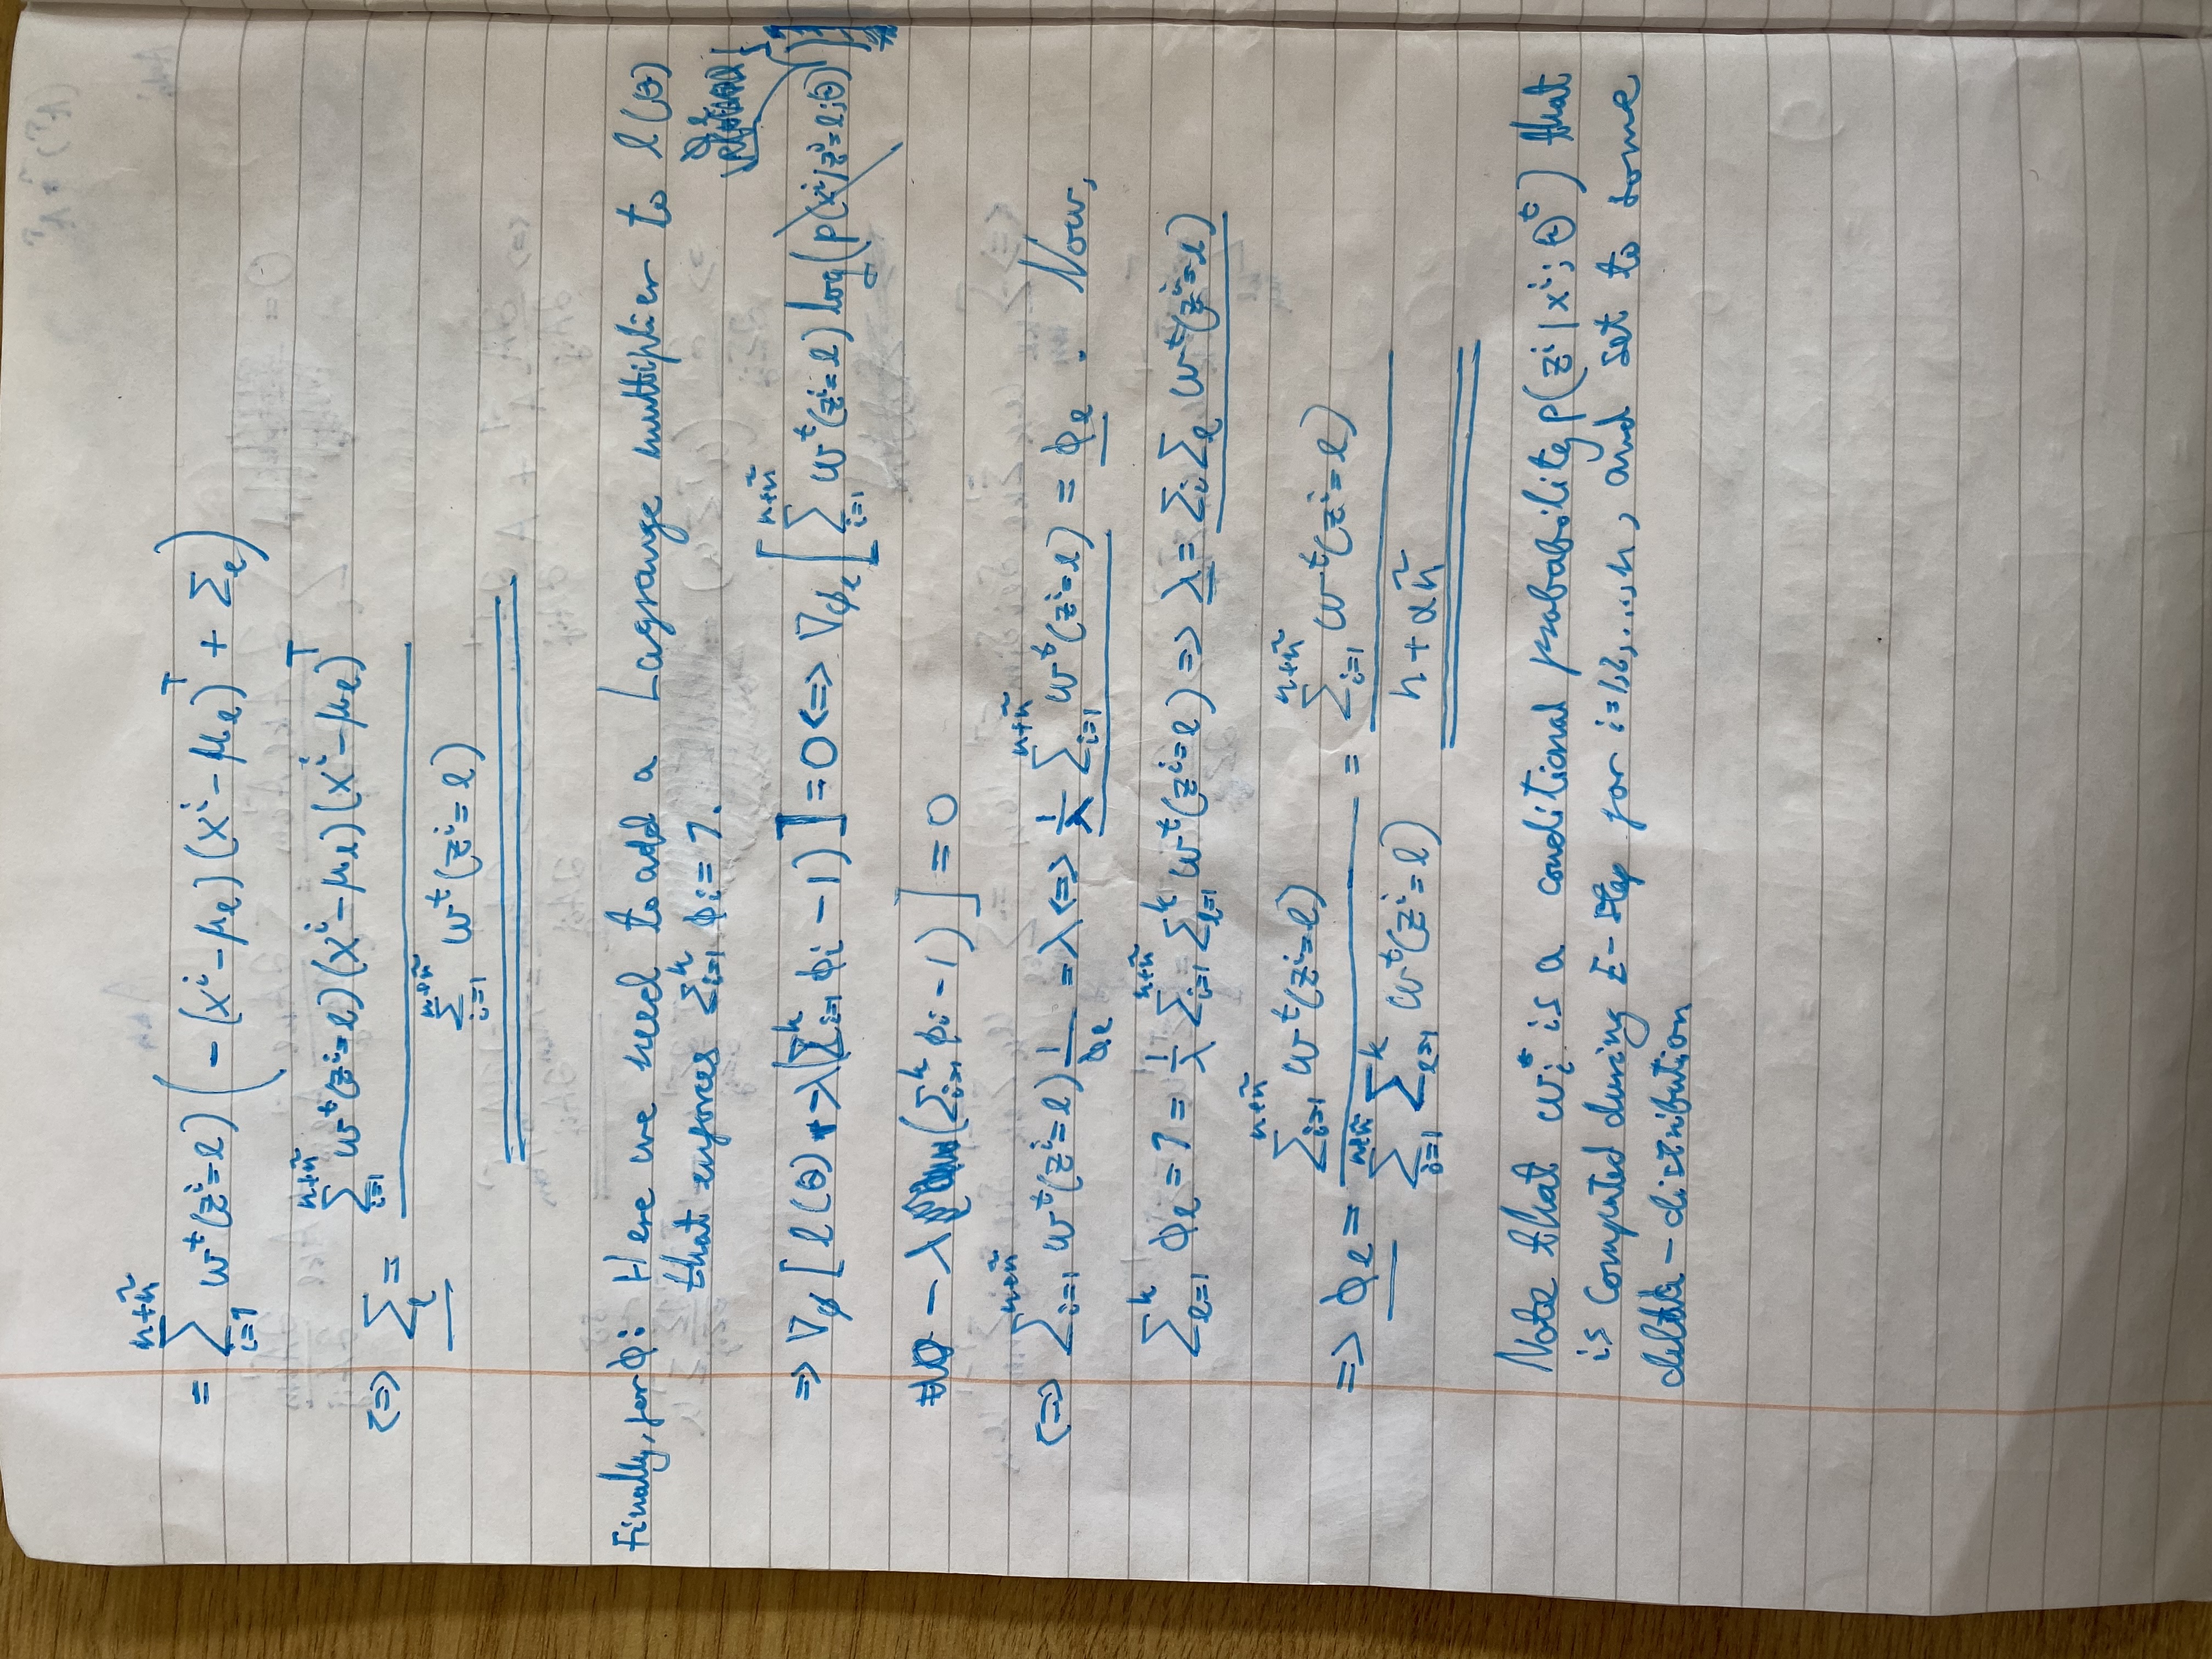 = ∑_{i=1}^{n+ñ} w^t(z^i=l) ( - (x^i-μ_l) (x^i-μ_l)^T + Σ_l )
<=> Σ_l = \frac{∑_{i=1}^{n+ñ} w^t(z^i=l) (x^i-μ_l) (x^i-μ_l)^T}{∑_{i=1}^{n+ñ} w^t(z^i=l)}
Finally, for ϕ: Here we need to add a Lagrange multiplier to l(θ)
that enforces ∑_{i=1}^k ϕ_i = 1.
=> ∇_ϕ [ l(θ) - λ(∑_{i=1}^k ϕ_i - 1) ] = 0 <=> ∇_{ϕ_l} [ ∑_{i=1}^{n+ñ} w^t(z^i=l) log( p(x^i|z^i=l;θ) ϕ_l )
- λ (∑_{i=1}^k ϕ_i - 1) ] = 0
<=> ∑_{i=1}^{n+ñ} w^t(z^i=l) \frac{1}{ϕ_l} = λ <=> \frac{1}{λ} ∑_{i=1}^{n+ñ} w^t(z^i=l) = ϕ_l . Now,
∑_{l=1}^k ϕ_l = 1 = \frac{1}{λ} ∑_{i=1}^{n+ñ} ∑_{l=1}^k w^t(z^i=l) => λ = ∑_i ∑_l w^t(z^i=l)
=> ϕ_l = \frac{∑_{i=1}^{n+ñ} w^t(z^i=l)}{∑_{i=1}^{n+ñ} ∑_{l=1}^k w^t(z^i=l)} = \frac{∑_{i=1}^{n+ñ} w^t(z^i=l)}{n+αñ}
Note that w_i^t is a conditional probability p(z^i|x^i; θ^t) that
is computed during E-step for i=1,2,...,n, and set to some
delta-distribution